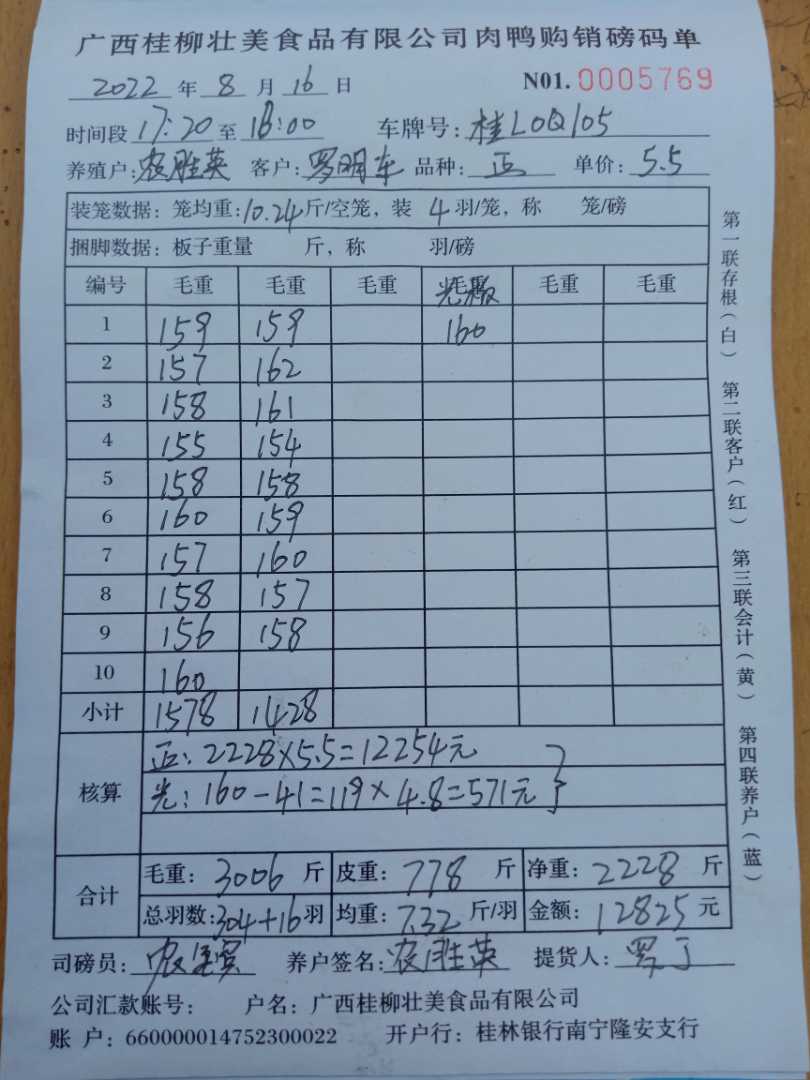 广西桂柳壮美食品有限公司肉鸭购销磅码单
2022 年 8 月 16 日 N01. 0005769
时间段 17:20 至 18:00 车牌号: 桂L0Q105
养殖户: 农胜英 客户: 罗明车 品种: 正 单价: 5.5
装笼数据: 笼均重: 10.24 斤/空笼, 装 4 羽/笼, 称 笼/磅
捆脚数据: 板子重量 斤, 称 羽/磅
编号 毛重 毛重 毛重 毛重 毛重 毛重
1 159 159 160
2 157 162
3 158 161
4 155 154
5 158 158
6 160 159
7 157 160
8 158 157
9 156 158
10 160
小计 1578 1428
核算
正: 2228×5.5=12254元
光: 160-41=119×4.8=571元
合计
毛重: 3006 斤 皮重: 778 斤 净重: 2228 斤
总羽数: 304+16 羽 均重: 7.32 斤/羽 金额: 12825 元
司磅员: 养户签名: 农胜英 提货人: 罗丁
公司汇款账号: 户名: 广西桂柳壮美食品有限公司
账 户: 660000014752300022 开户行: 桂林银行南宁隆安支行
第一联存根(白) 第二联客户(红) 第三联会计(黄) 第四联养户(蓝)